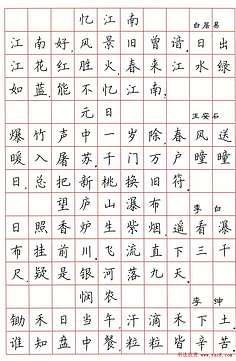 忆江南 白居易
江南好,风景旧曾谙,日出
江花红胜火,春来江水绿
如蓝,能不忆江南,
元日 王安石
爆竹声中一岁除,春风送
暖入屠苏,千门万户曈曈
日,总把新桃换旧符.
望庐山瀑布 李白
日照香炉生紫烟,遥看瀑
布挂前川,飞流直下三千
尺,疑是银河落九天.
悯农 李绅
锄禾日当午,汗滴禾下土
谁知盘中餐,粒粒皆辛苦.